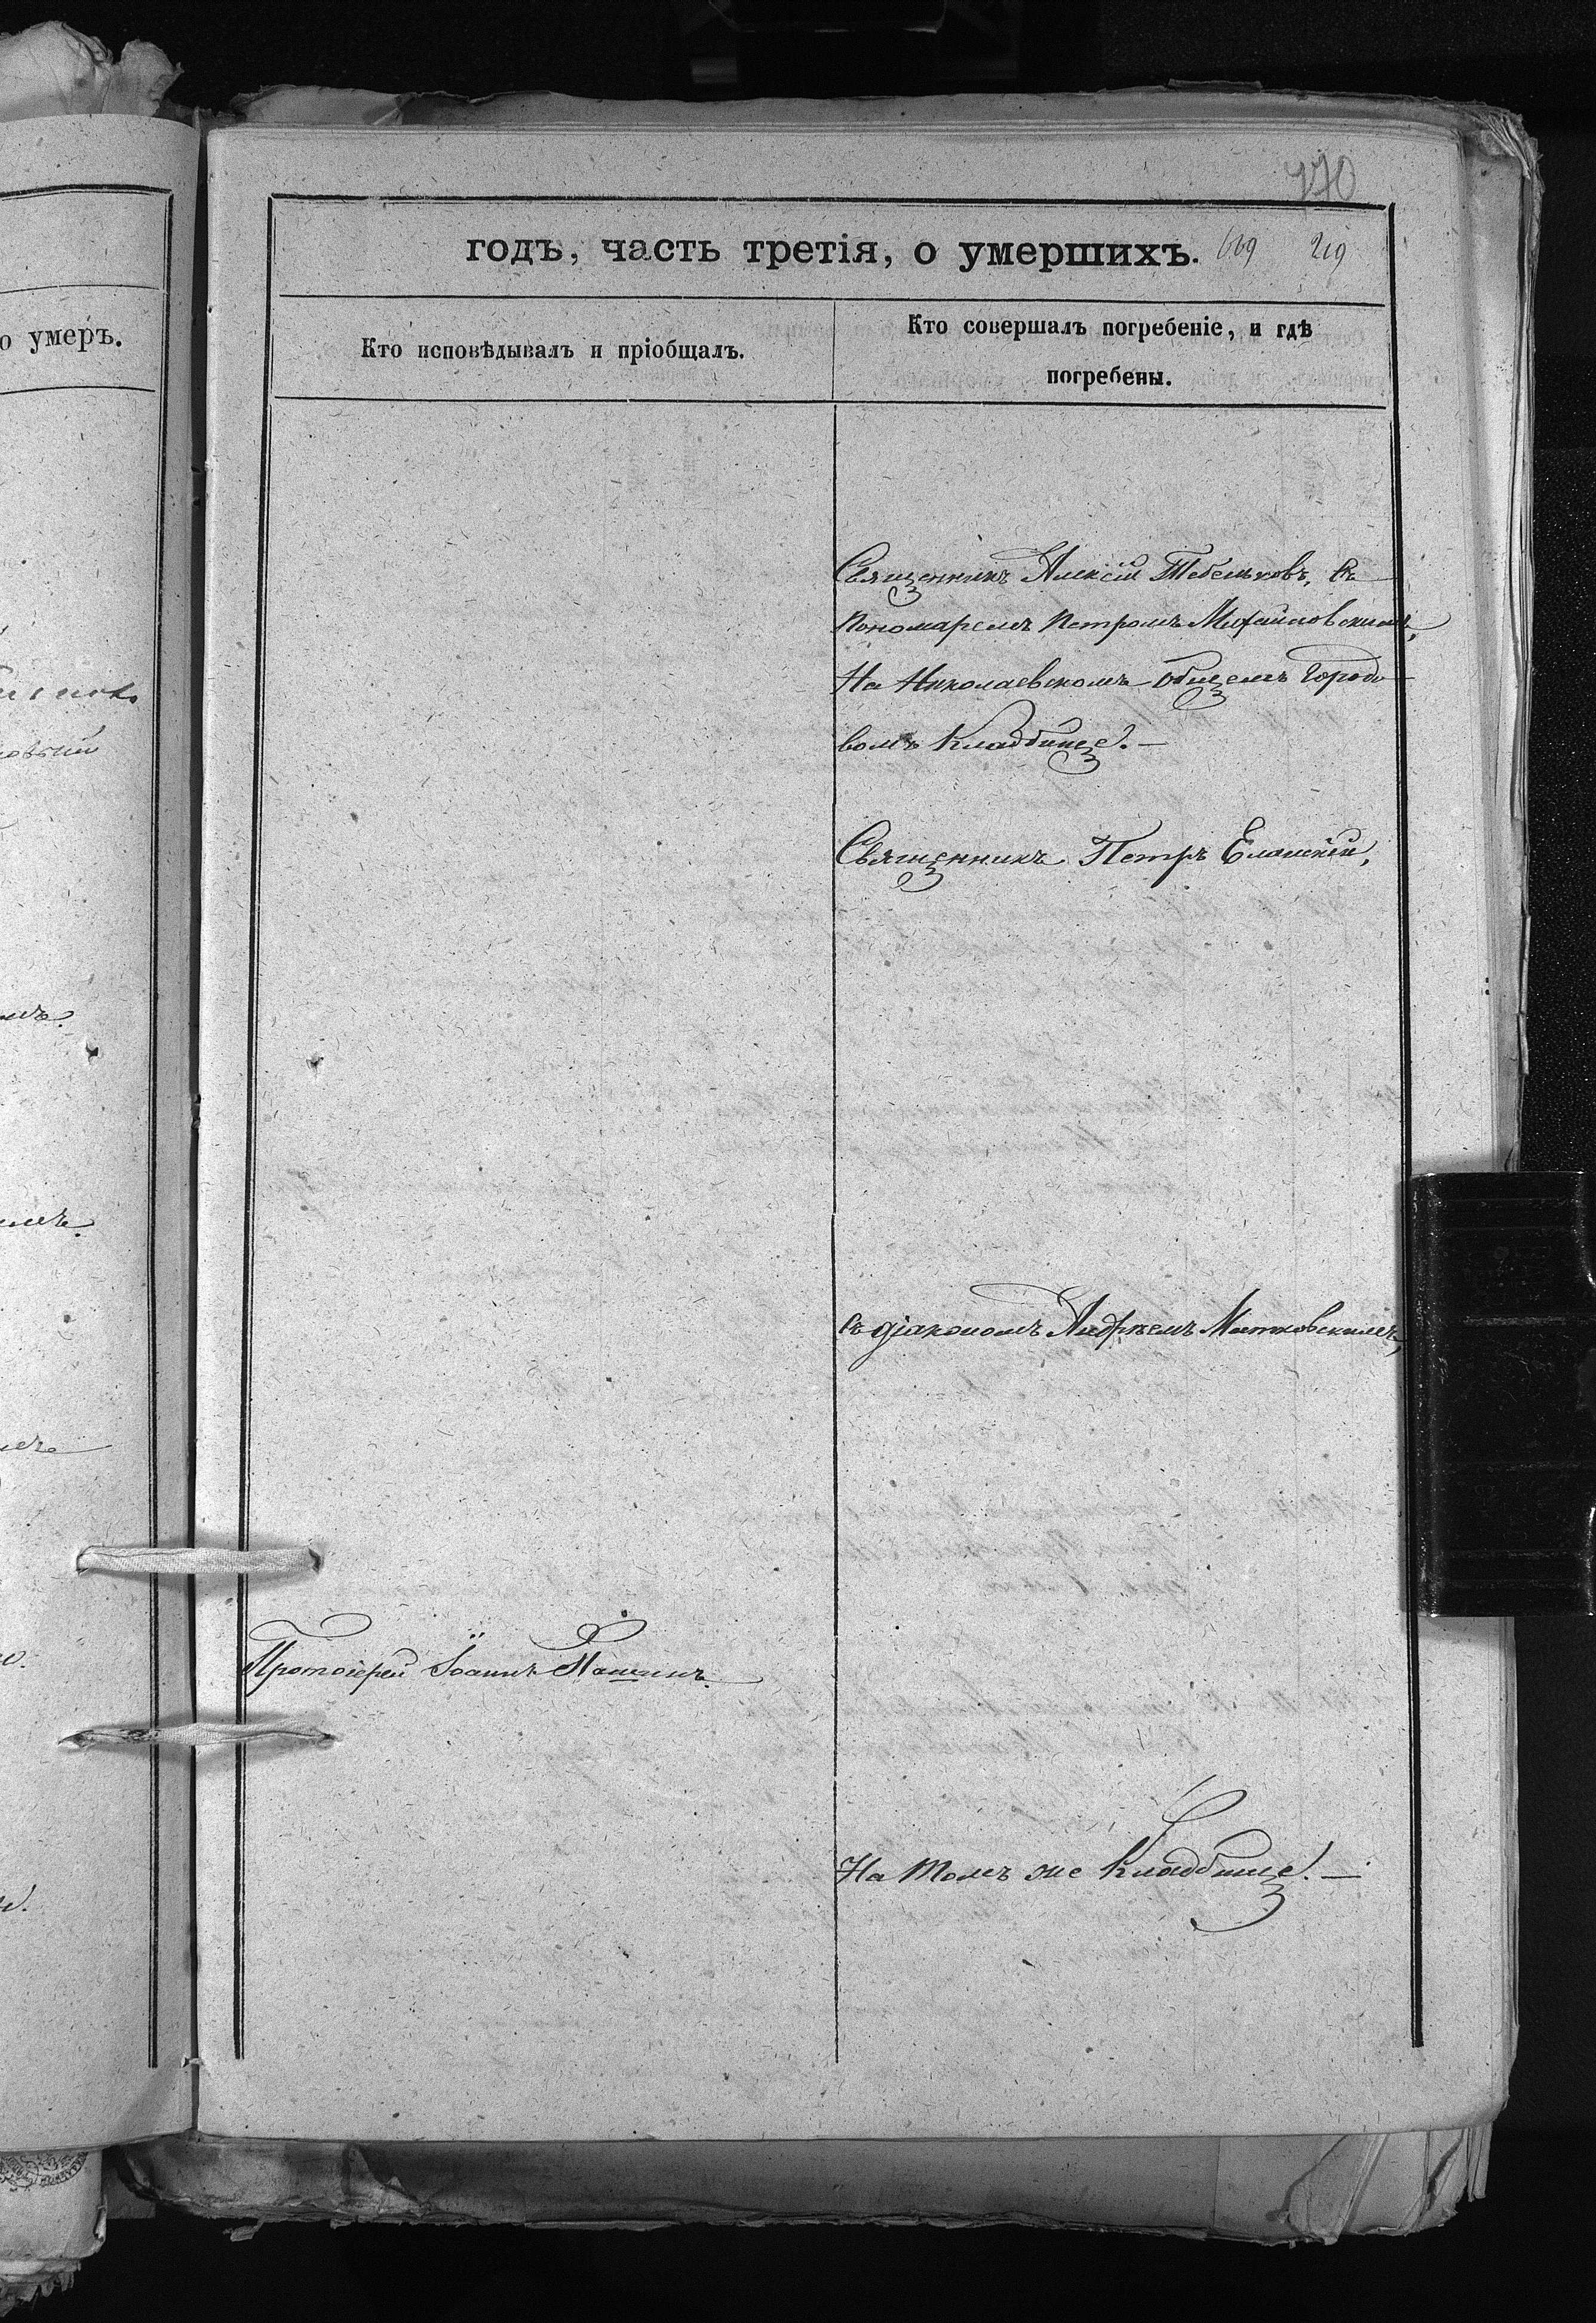 770
годъ, часть третія, о умершихъ. 669 219
о умеръ.
Кто исповѣдывалъ и пріобщалъ.
Кто совершалъ погребеніе, и гдѣ
погребены.
Священникъ Алексій Тебеньковъ, съ
Пономаремъ Петромъ Михайловскимъ,
На Николаевскомъ Общемъ Городо
вомъ Кладбищѣ. —
Священникъ Петръ Еланскій,
съ діакономъ Андрѣемъ Митковскимъ,
Протоіерей Іоаннъ
На томъ же Кладбищѣ. —